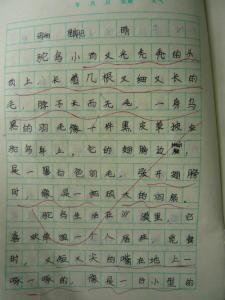 年 月 日 星期 天气
晴
鸵鸟小而又光秃秃的头
顶上长着几根又细又长的
毛，脖子长而无毛，一身乌
黑的羽毛像一件黑皮草披在
鸵鸟身上。它的翅膀边
是一黑白色羽毛，张开翅膀
时，像是一把极大的羽扇。
鸵鸟生活在沙漠里，它
喜欢像跟一个人居住，觅食
时，又短又尖的嘴在地上一
啄一啄的，像是一台小型的